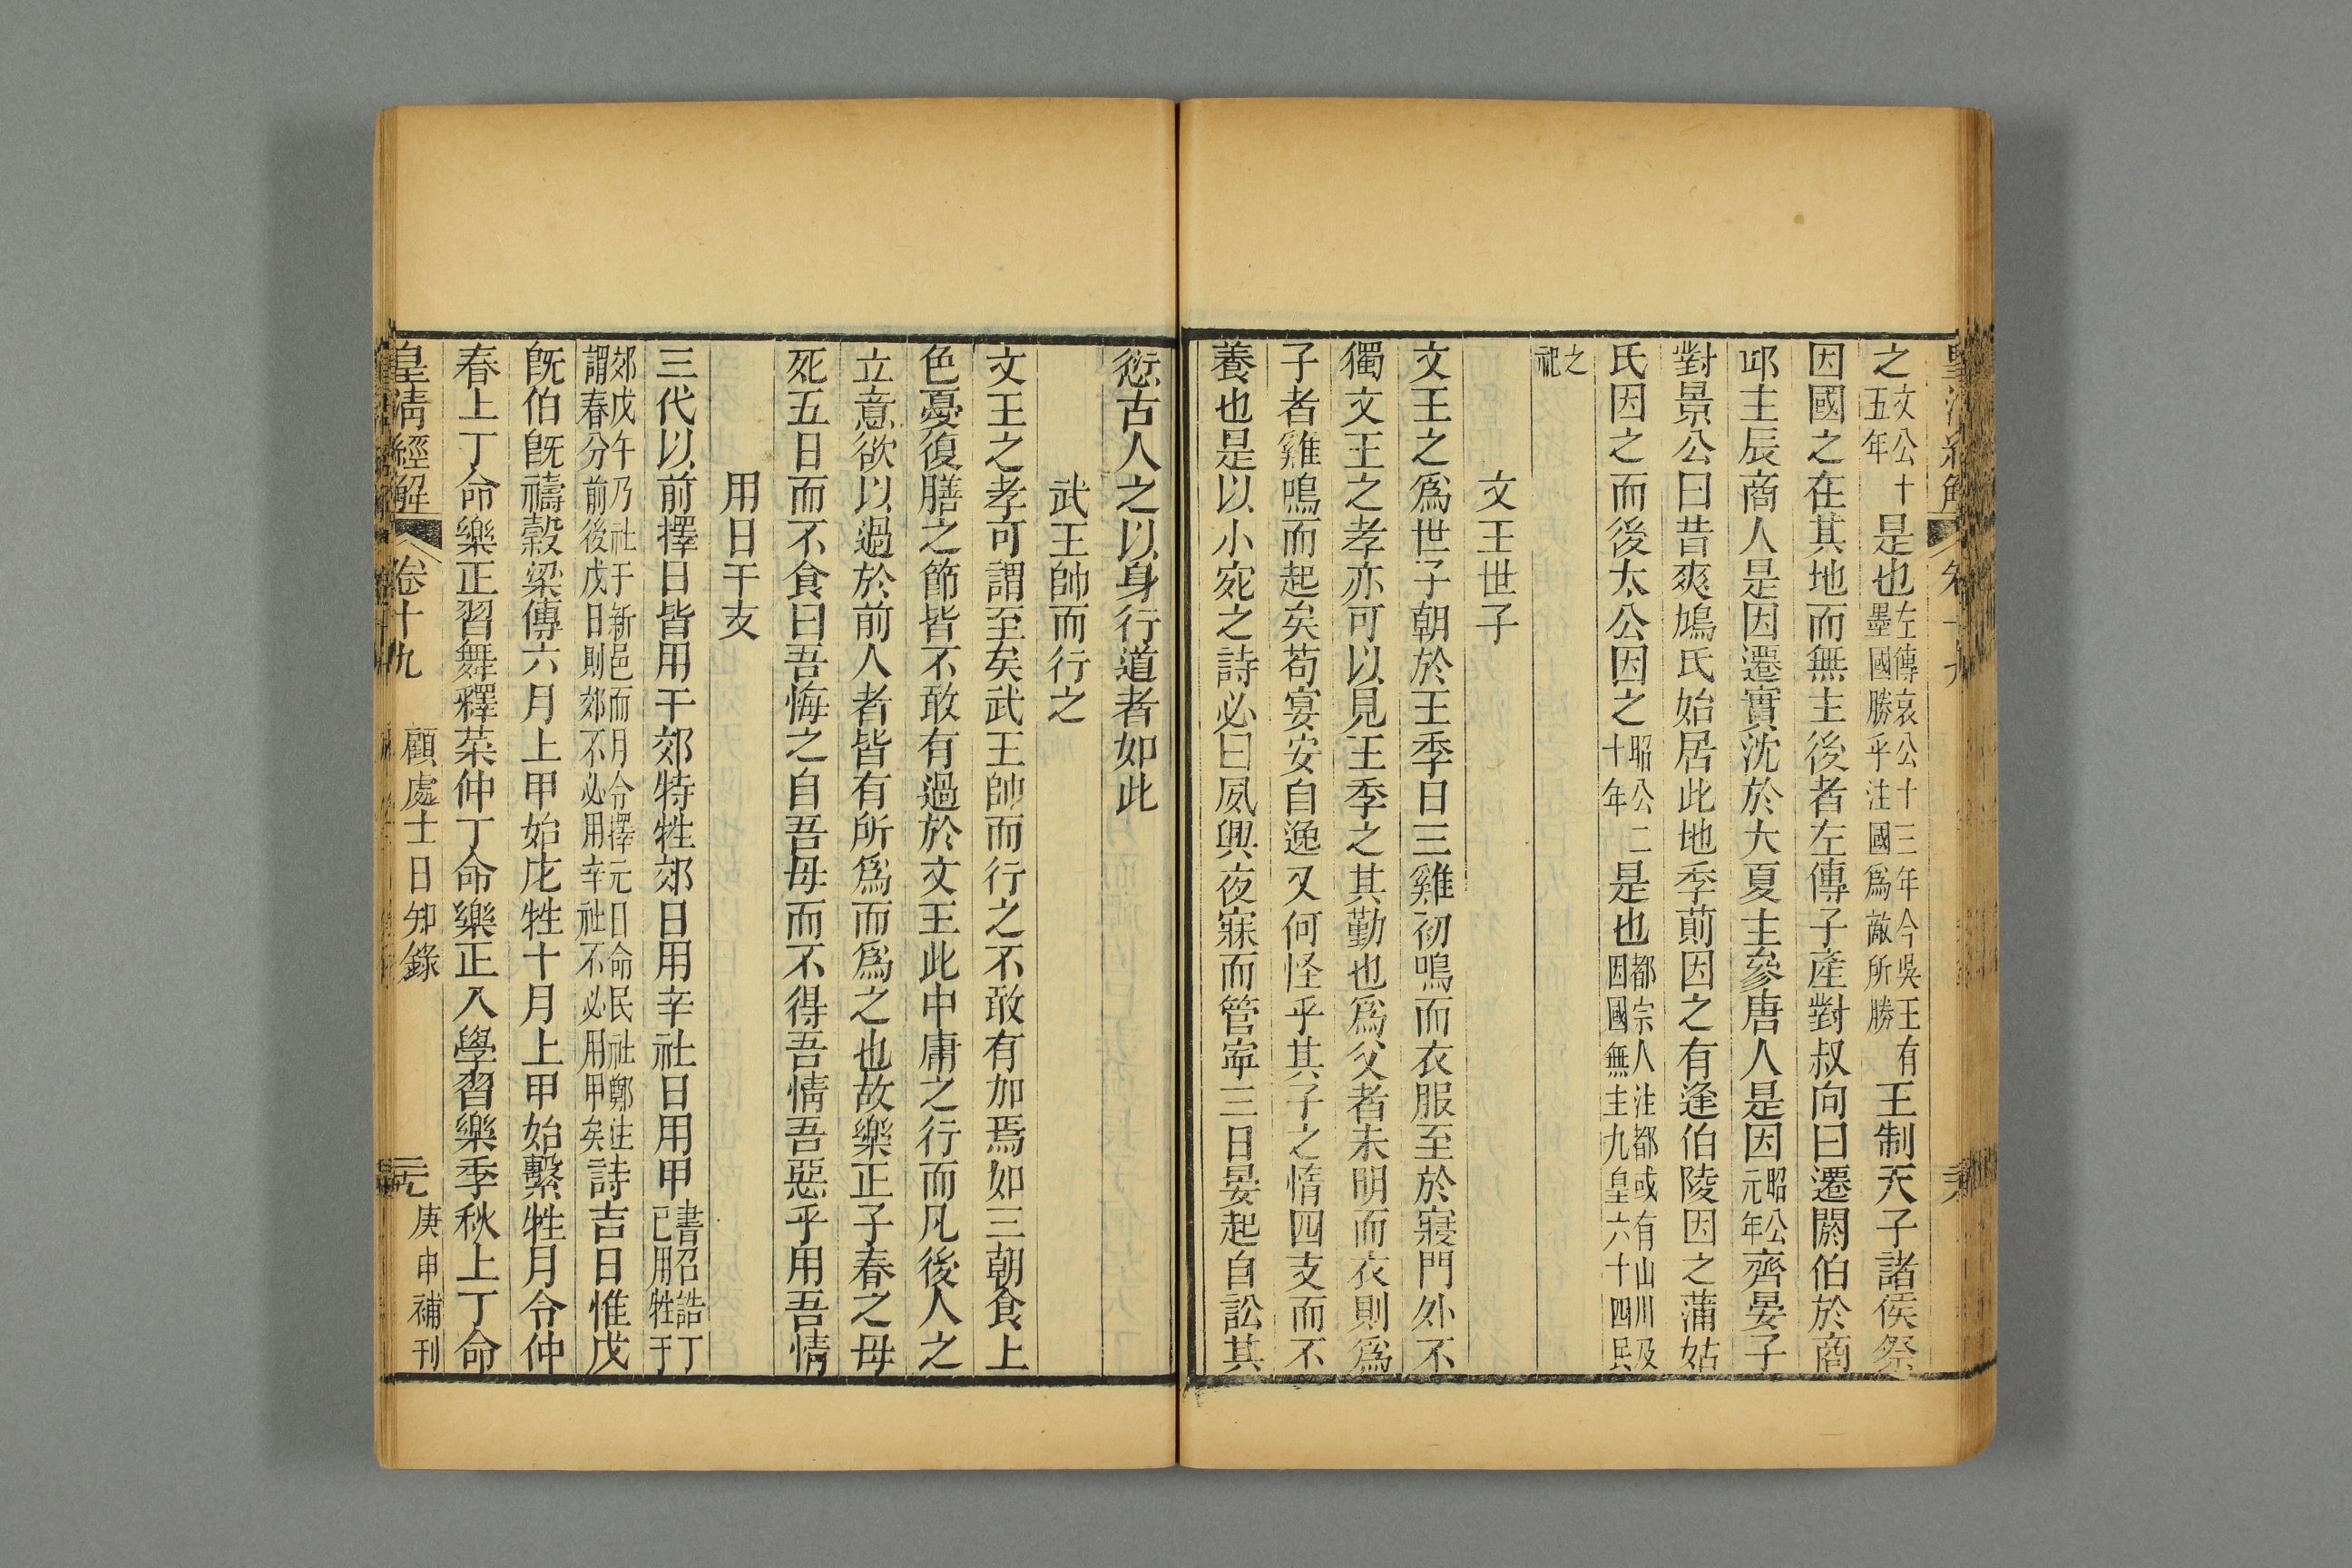 之文公十五年是也左傳哀公十三年今吳王有墨國勝乎注國爲敵所勝王制天子諸侯祭
因國之在其地而無主後者左傳子產對叔向曰遷閼伯於商
邱主辰商人是因遷實沈於大夏主參唐人是因昭公元年齊晏子
對景公曰昔爽鳩氏始居此地季萴因之有逢伯陵因之蒲姑
氏因之而後太公因之昭公二十年是也都宗人注都或有山川及因國無主九皇六十四民
之祀
文王世子
文王之爲世子朝於王季日三雞初鳴而衣服至於寢門外不
獨文王之孝亦可以見王季之其勤也爲父者未明而衣則爲
子者雞鳴而起矣苟宴安自逸又何怪乎其子之惰四支而不
養也是以小宛之詩必曰夙興夜寐而管寧三日晏起自訟其
愆古人之以身行道者如此
武王帥而行之
文王之孝可謂至矣武王帥而行之不敢有加焉如三朝食上
色憂復膳之節皆不敢有過於文王此中庸之行而凡後人之
立意欲以過於前人者皆有所爲而爲之也故樂正子春之母
死五日而不食曰吾悔之自吾母而不得吾情吾惡乎用吾情
用日干支
三代以前擇日皆用干郊特牲郊日用辛社日用甲書召誥丁巳用牲于
郊戊午乃社于新邑而月令擇元日命民社鄭注謂春分前後戊日則郊不必用辛社不必用甲矣詩吉日惟戊
旣伯旣禱穀梁傳六月上甲始庀牲十月上甲始繫牲月令仲
春上丁命樂正習舞釋菜仲丁命樂正入學習樂季秋上丁命
皇清經解 卷十九 顧處士日知錄 元 庚申補刊